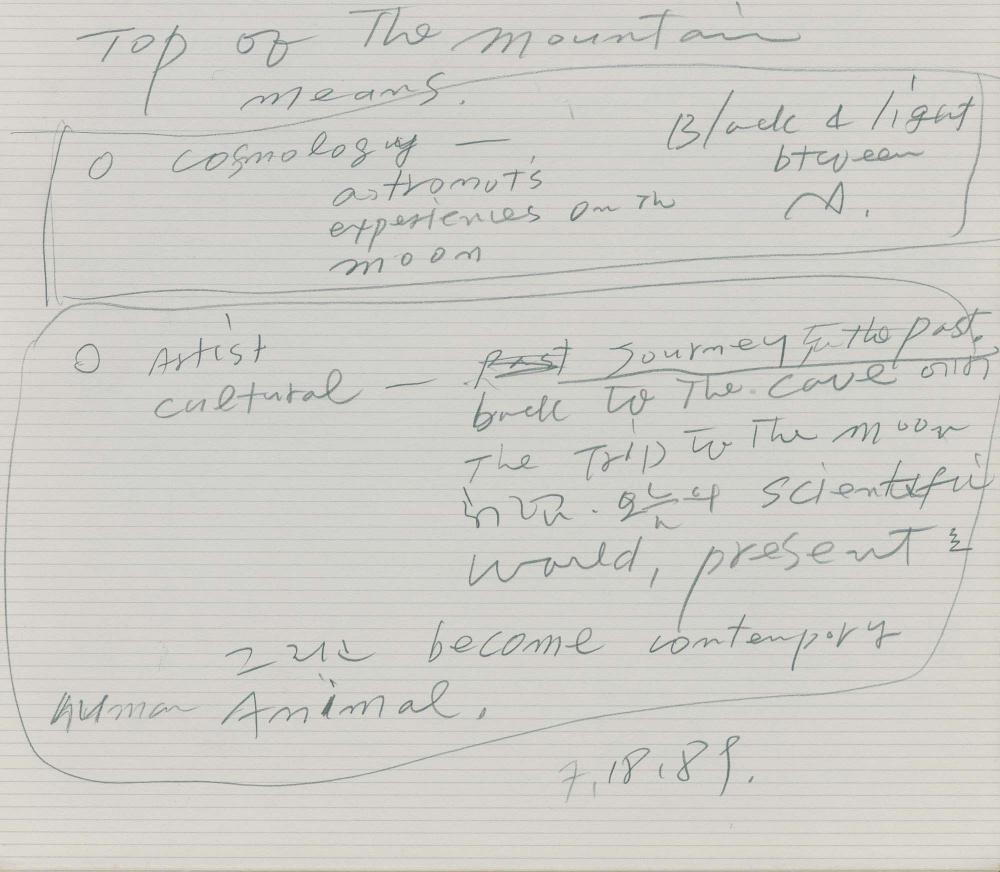 Top of The mountain
means.
O cosmology — Black & light
btween
astronut's
experiences on Th
moon
O Artist
cultural — Journey To the past.
back to The cave 에서
The Trip to The moon
하고. 오늘의 scientific
world, present 로
그리고 become contempory
human Animal.
7,18,89.